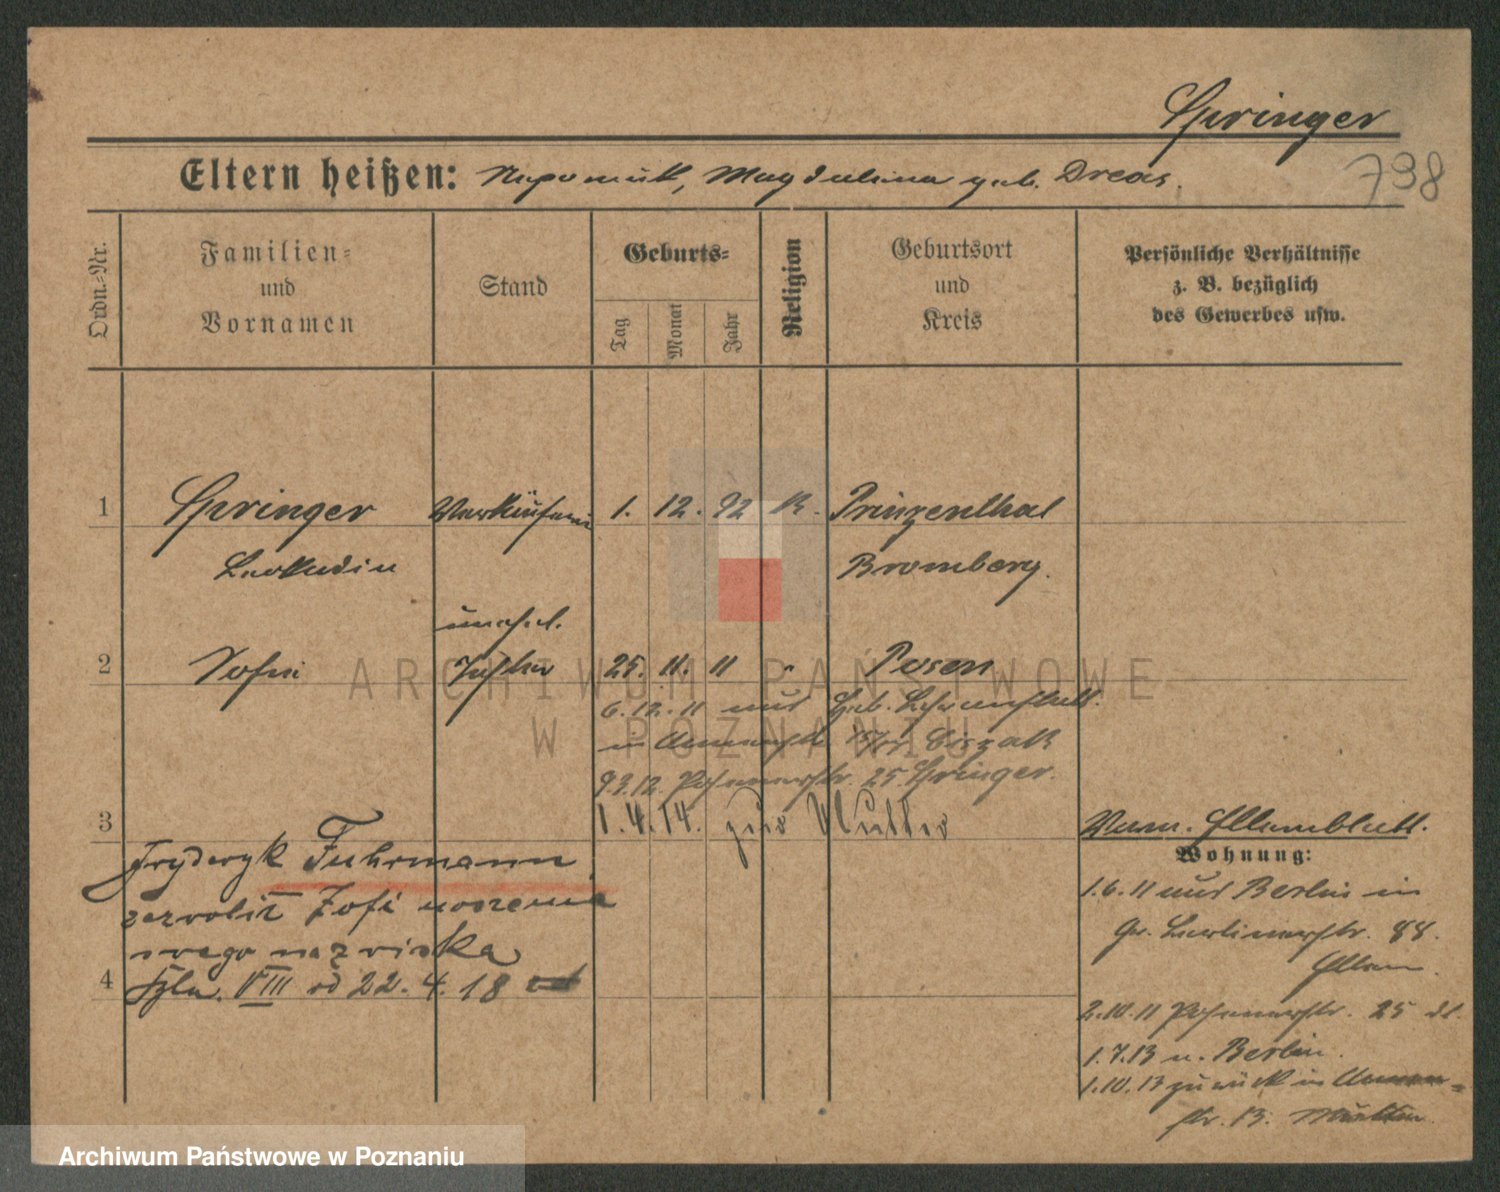 Springer
798
Eltern heißen: Nepomuk, Magdalena geb. Dreas.
Ordn.-Nr.
Familien-
und
Vornamen
Stand
Geburts-
Tag
Monat
Jahr
Religion
Geburtsort
und
Kreis
Persönliche Verhältnisse
z. B. bezüglich
des Gewerbes usw.
1 Springer Verkäuferin 1. 12. 92 K. Prinzenthal
Leokadia Bromberg.
unehel.
2 Sofie Tochter 25. 11. 11 " Posen
6.12.11 aus Heb. Lehranstalt.
in 15/17 Ciszak
93.12. Posenerstr. 25. Springer.
3 1.4.14. zur Mutter
Verm. Elternblatt.
Fryderyk Fuhrmann
zezwolił Zofi noszenia
swego nazwiska
4 VIII od 22.4.18
Wohnung:
1.6.11 aus Berlin in
Gr. Berlinerstr. 88.
Eltern.
2.10.11 Posenerstr. 25
1.7.13 n. Berlin.
1.10.13 zurück in
str. 13.
ARCHIWUM PAŃSTWOWE
W POZNANIU
Archiwum Państwowe w Poznaniu